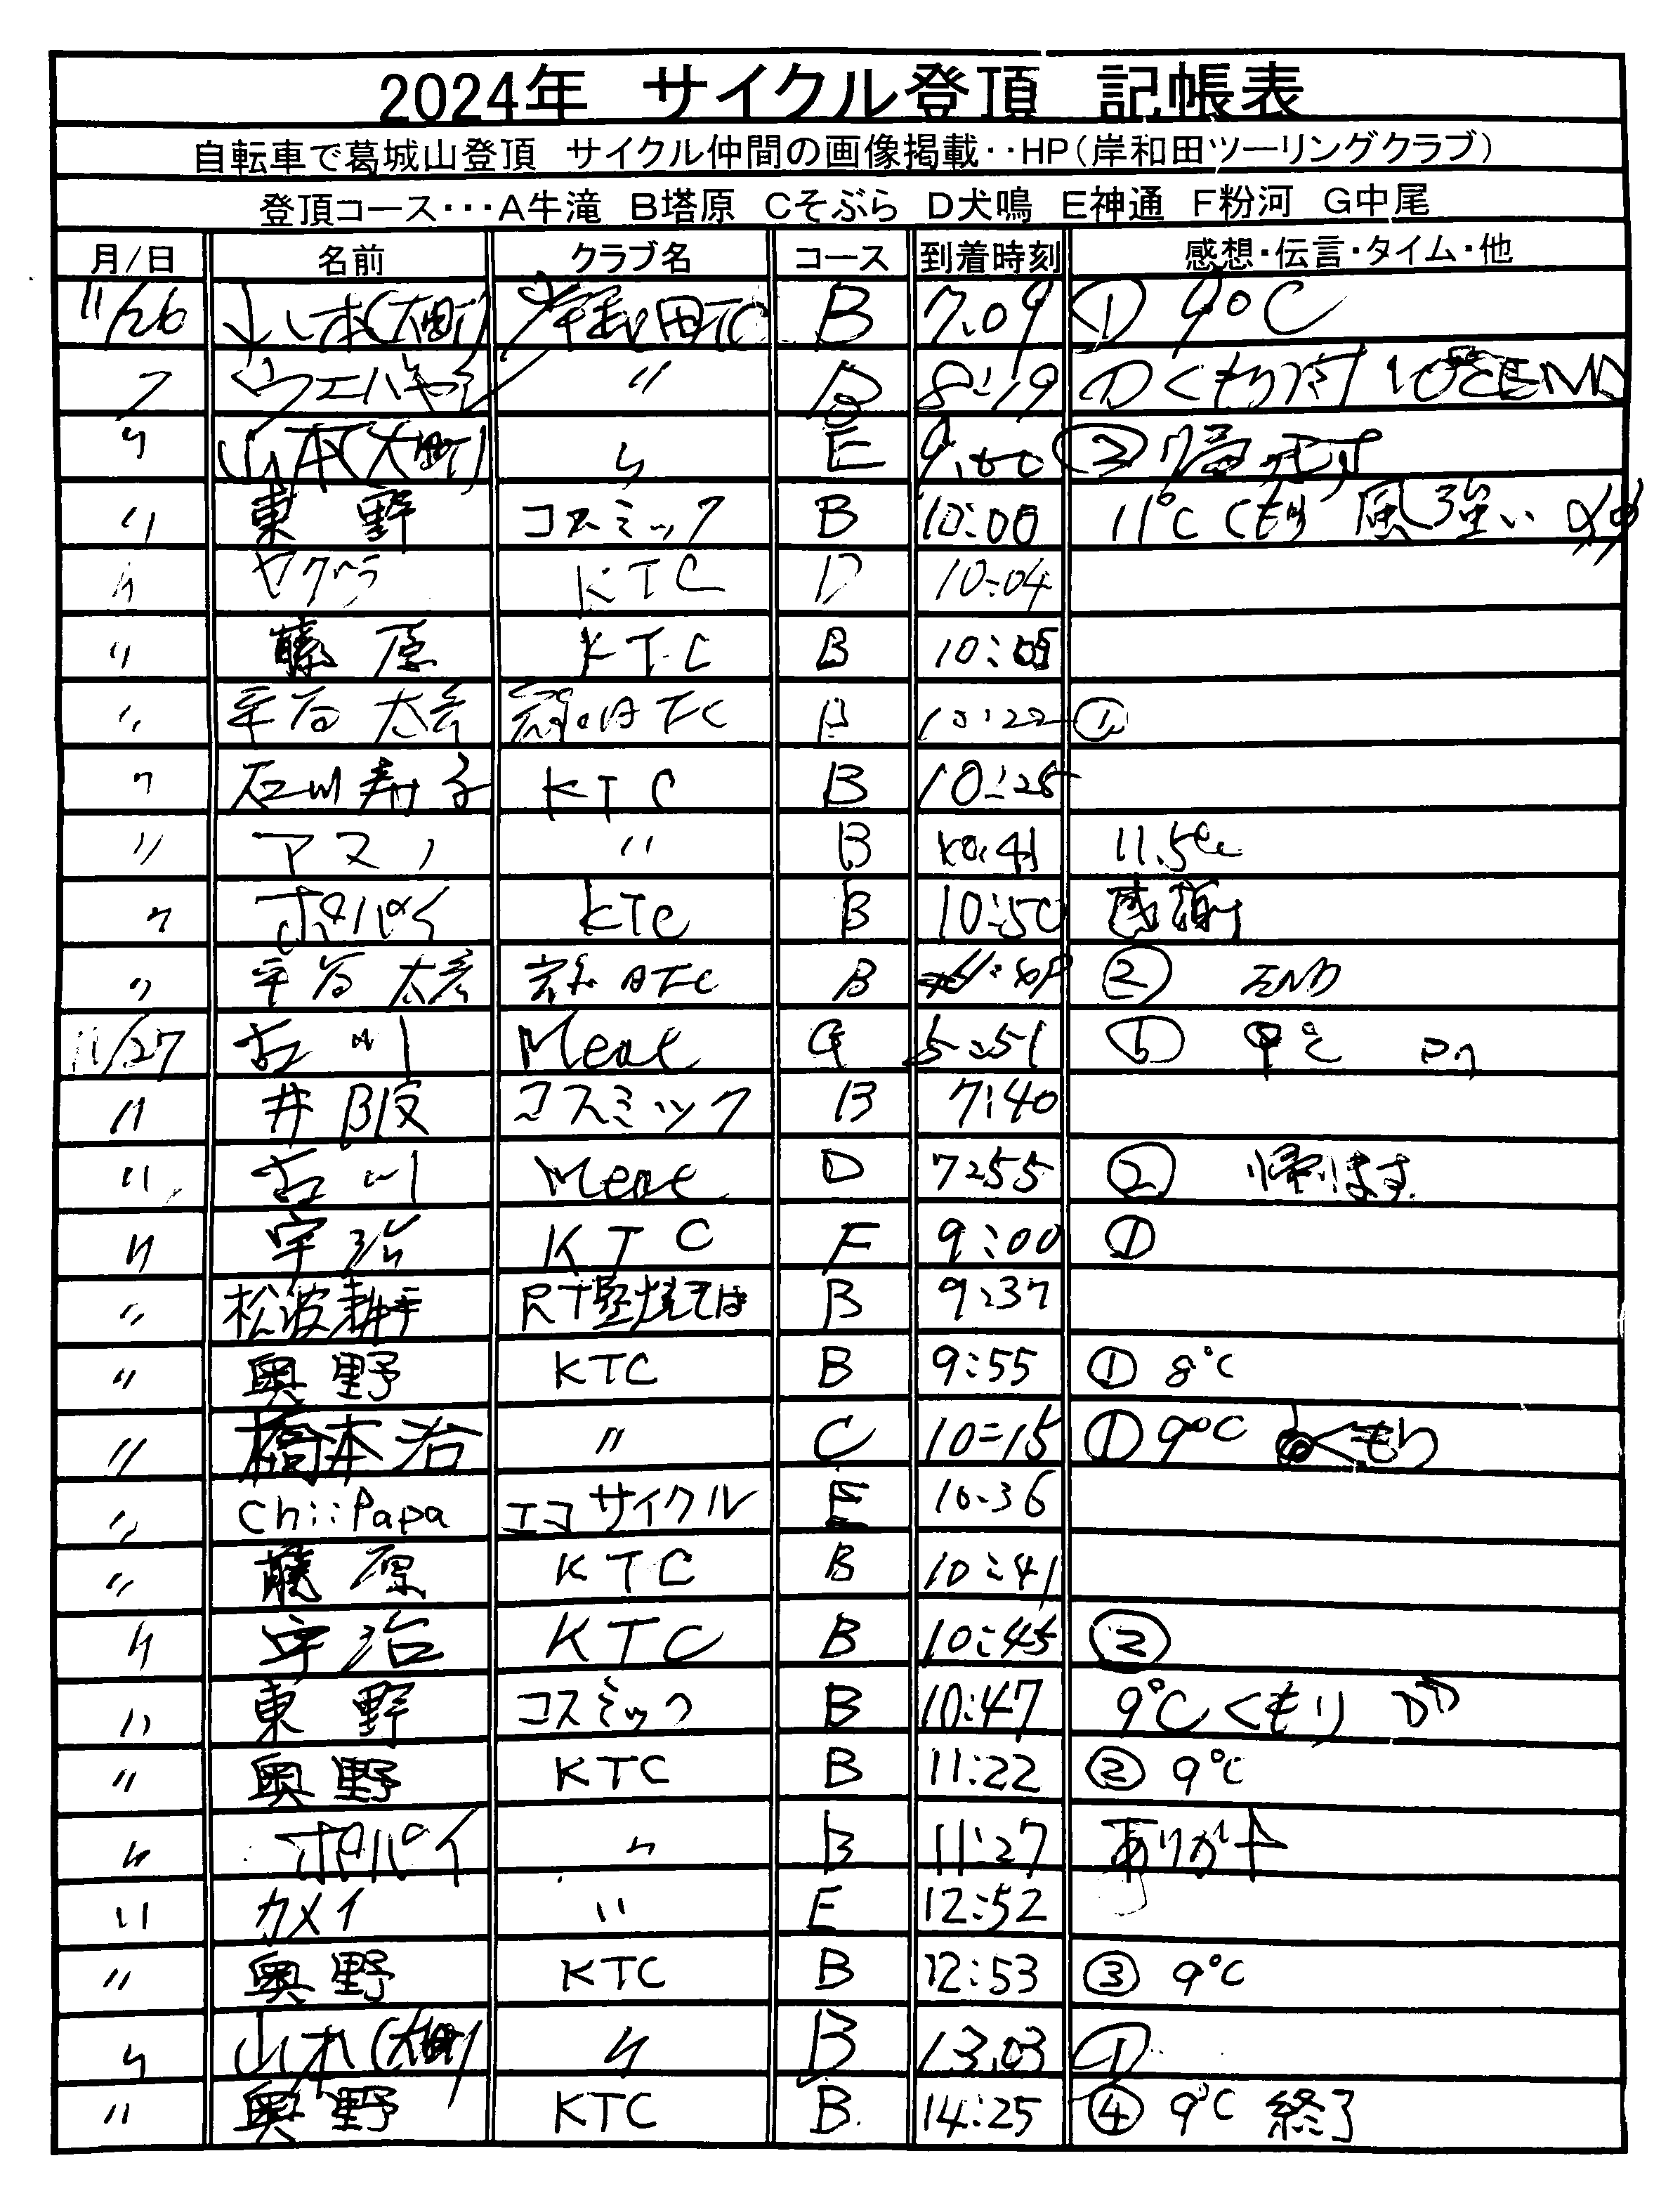 2024年 サイクル登頂 記帳表
自転車で葛城山登頂 サイクル仲間の画像掲載‥HP(岸和田ツーリングクラブ)
登頂コース･･･A牛滝 B塔原 Cそぶら D犬鳴 E神通 F粉河 G中尾
月/日 名前 クラブ名 コース 到着時刻 感想・伝言・タイム・他
11/26 山本(大町) 岸和田TC B 7.09 ① 9℃
〃 〃 B 8:19 ① くもり 10℃ END
〃 山本(大町) 〃 E ②
〃 東野 コスミック B 10:00 11℃ くもり 風強い
〃 ヤクラ KTC D 10:04
〃 藤原 KTC B 10:05
〃 平谷 KTC B 10:22 ①
〃 石川寿子 KTC B 10:25
〃 アマノ 〃 B 10:41 11.5℃
〃 ポパイ KTC B 10:50 感謝
〃 平谷 B ② END
11/27 古川 Meat G 5:51 ① 9℃
〃 井阪 コスミック B 7:40
〃 古川 Meat D 7:55 ② 帰ります
〃 宇治 KTC F 9:00 ①
〃 松波耕平 RT堅焼そば B 9:37
〃 奥野 KTC B 9:55 ① 8℃
〃 橋本治 〃 C 10:15 ① 9℃ くもり
〃 Chii Papa エコサイクル E 10:36
〃 藤原 KTC B 10:41
〃 宇治 KTC B 10:45 ②
〃 東野 コスミック B 10:47 9℃ くもり
〃 奥野 KTC B 11:22 ② 9℃
〃 ポパイ 〃 B 11:27 ありがとう
〃 カメイ 〃 E 12:52
〃 奥野 KTC B 12:53 ③ 9℃
〃 山本(大町) 〃 B 13.03 ①
〃 奥野 KTC B 14:25 ④ 9℃ 終了